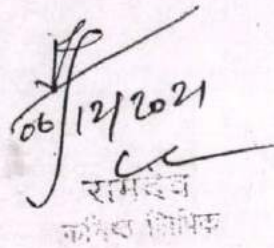 06/12/2021
रामदेव
कनिष्ठ लिपिक